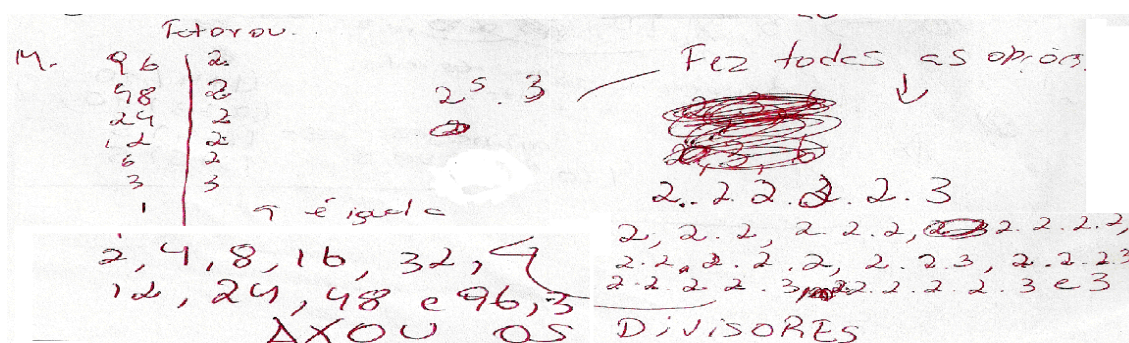 Fatorou..
M. 96 | 2
48 | 2
24 | 2
12 | 2
6 | 2
3 | 3
1
2⁵ . 3
Fez todas as opções
2 . 2 . 2 . 2 . 2 . 3
é igual a
2, 4, 8, 16, 32,
12, 24, 48 e 96, 3
2, 2.2, 2.2.2, 2.2.2.2,
2.2.2.2.2, 2.2.3, 2.2.2.3
2.2.2.2.3, 2.2.2.2.2.3 e 3
AXOU OS DIVISORES